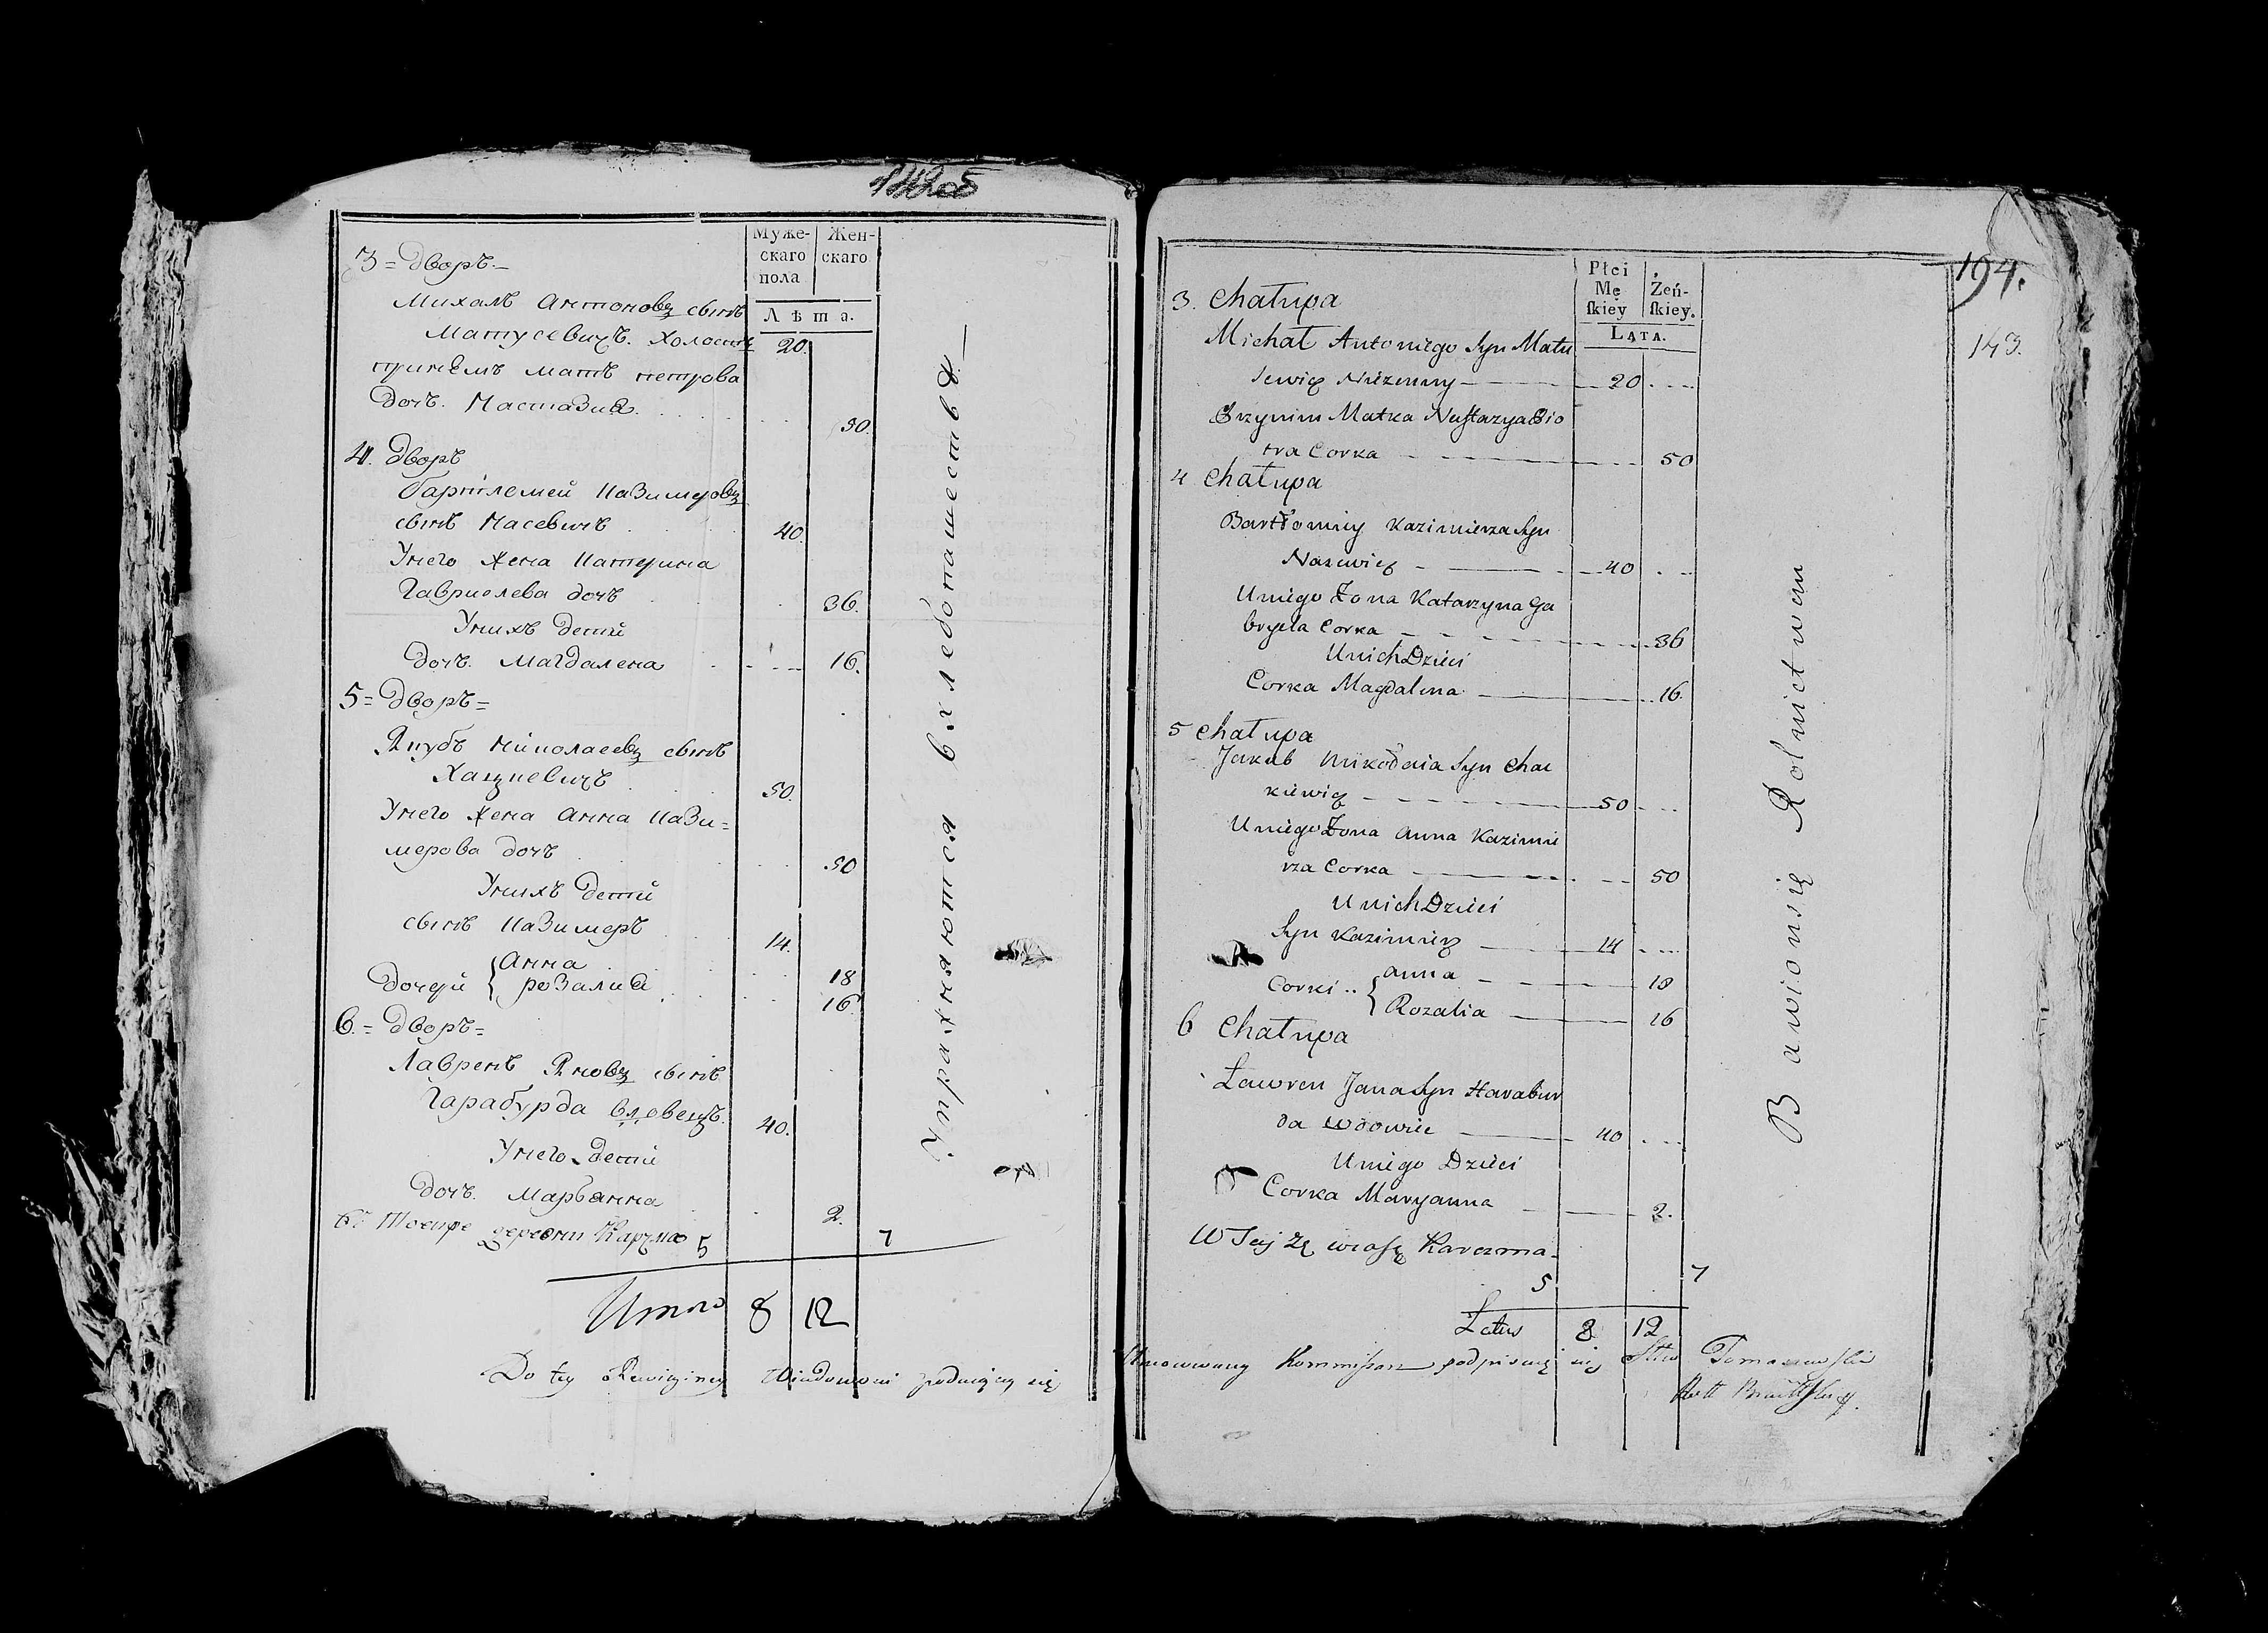 142об
Муже-
скаго
пола
Жен-
скаго
Лѣта.
3 = дворъ.
Михалъ Антоновъ сынъ
Матусевичъ. холостъ 20.
при немъ мать петрова
дочь. Настазиа. 50.
4. дворъ
бартломей Казимеровъ
сынъ Насевичъ 40.
Унего жена Катерина
Гавриелева дочь 36.
Унихъ дети
дочь. Магдалена 16.
5 = дворъ =
Якубъ Николаевъ сынъ
Хацкевичъ 50.
Унего жена Анна Кази=
мерова дочь 50
Унихъ дети
сынъ Казимеръ 14.
дочери { Анна 18
розалиа 16.
6. = дворъ =
Лавренъ Яновъ сынъ
Гарабурда вдовецъ. 40.
Унего дети
дочь. Марьянна 2.
Въ тоейже деревни Карчма
5 7
Итого 8 12
Упражняются вхлебопашестве
Do tey Rewizyiney
podpisuię się
194.
143.
Płci
Mę
ſkiey
Żeń-
ſkiey.
LATA.
3. Chałupa
Michał Antoniego Syn Matu
sewicz Nieżenny 20
Przynim Matka Nastazya Pio
tra Corka 50
4 Chałupa
Bartłomiey Kazimierza Syn
Nasewicz 40
Uniego Żona Katarzyna Ga
bryela Corka 36
Unich Dzieci
Corka Magdalena 16.
5 Chałupa
Jakub Mikołaia Syn Chac
kiewicz 50
Uniego Żona Anna Kazimie
rza Corka 50
Unich Dzieci
Syn Kazimierz 14
Corki .. { Anna 18
Rozalia 16
6 Chałupa
Ławren Jana Syn Harabur
da Wdowiec 40
Uniego Dzieci
Corka Maryanna 2.
W Tej Że wiosce Karczma
5 7
Latus 8 12
Kommissarz podpisuię się
Tomaszewski
Bawionsię Rolnictwem